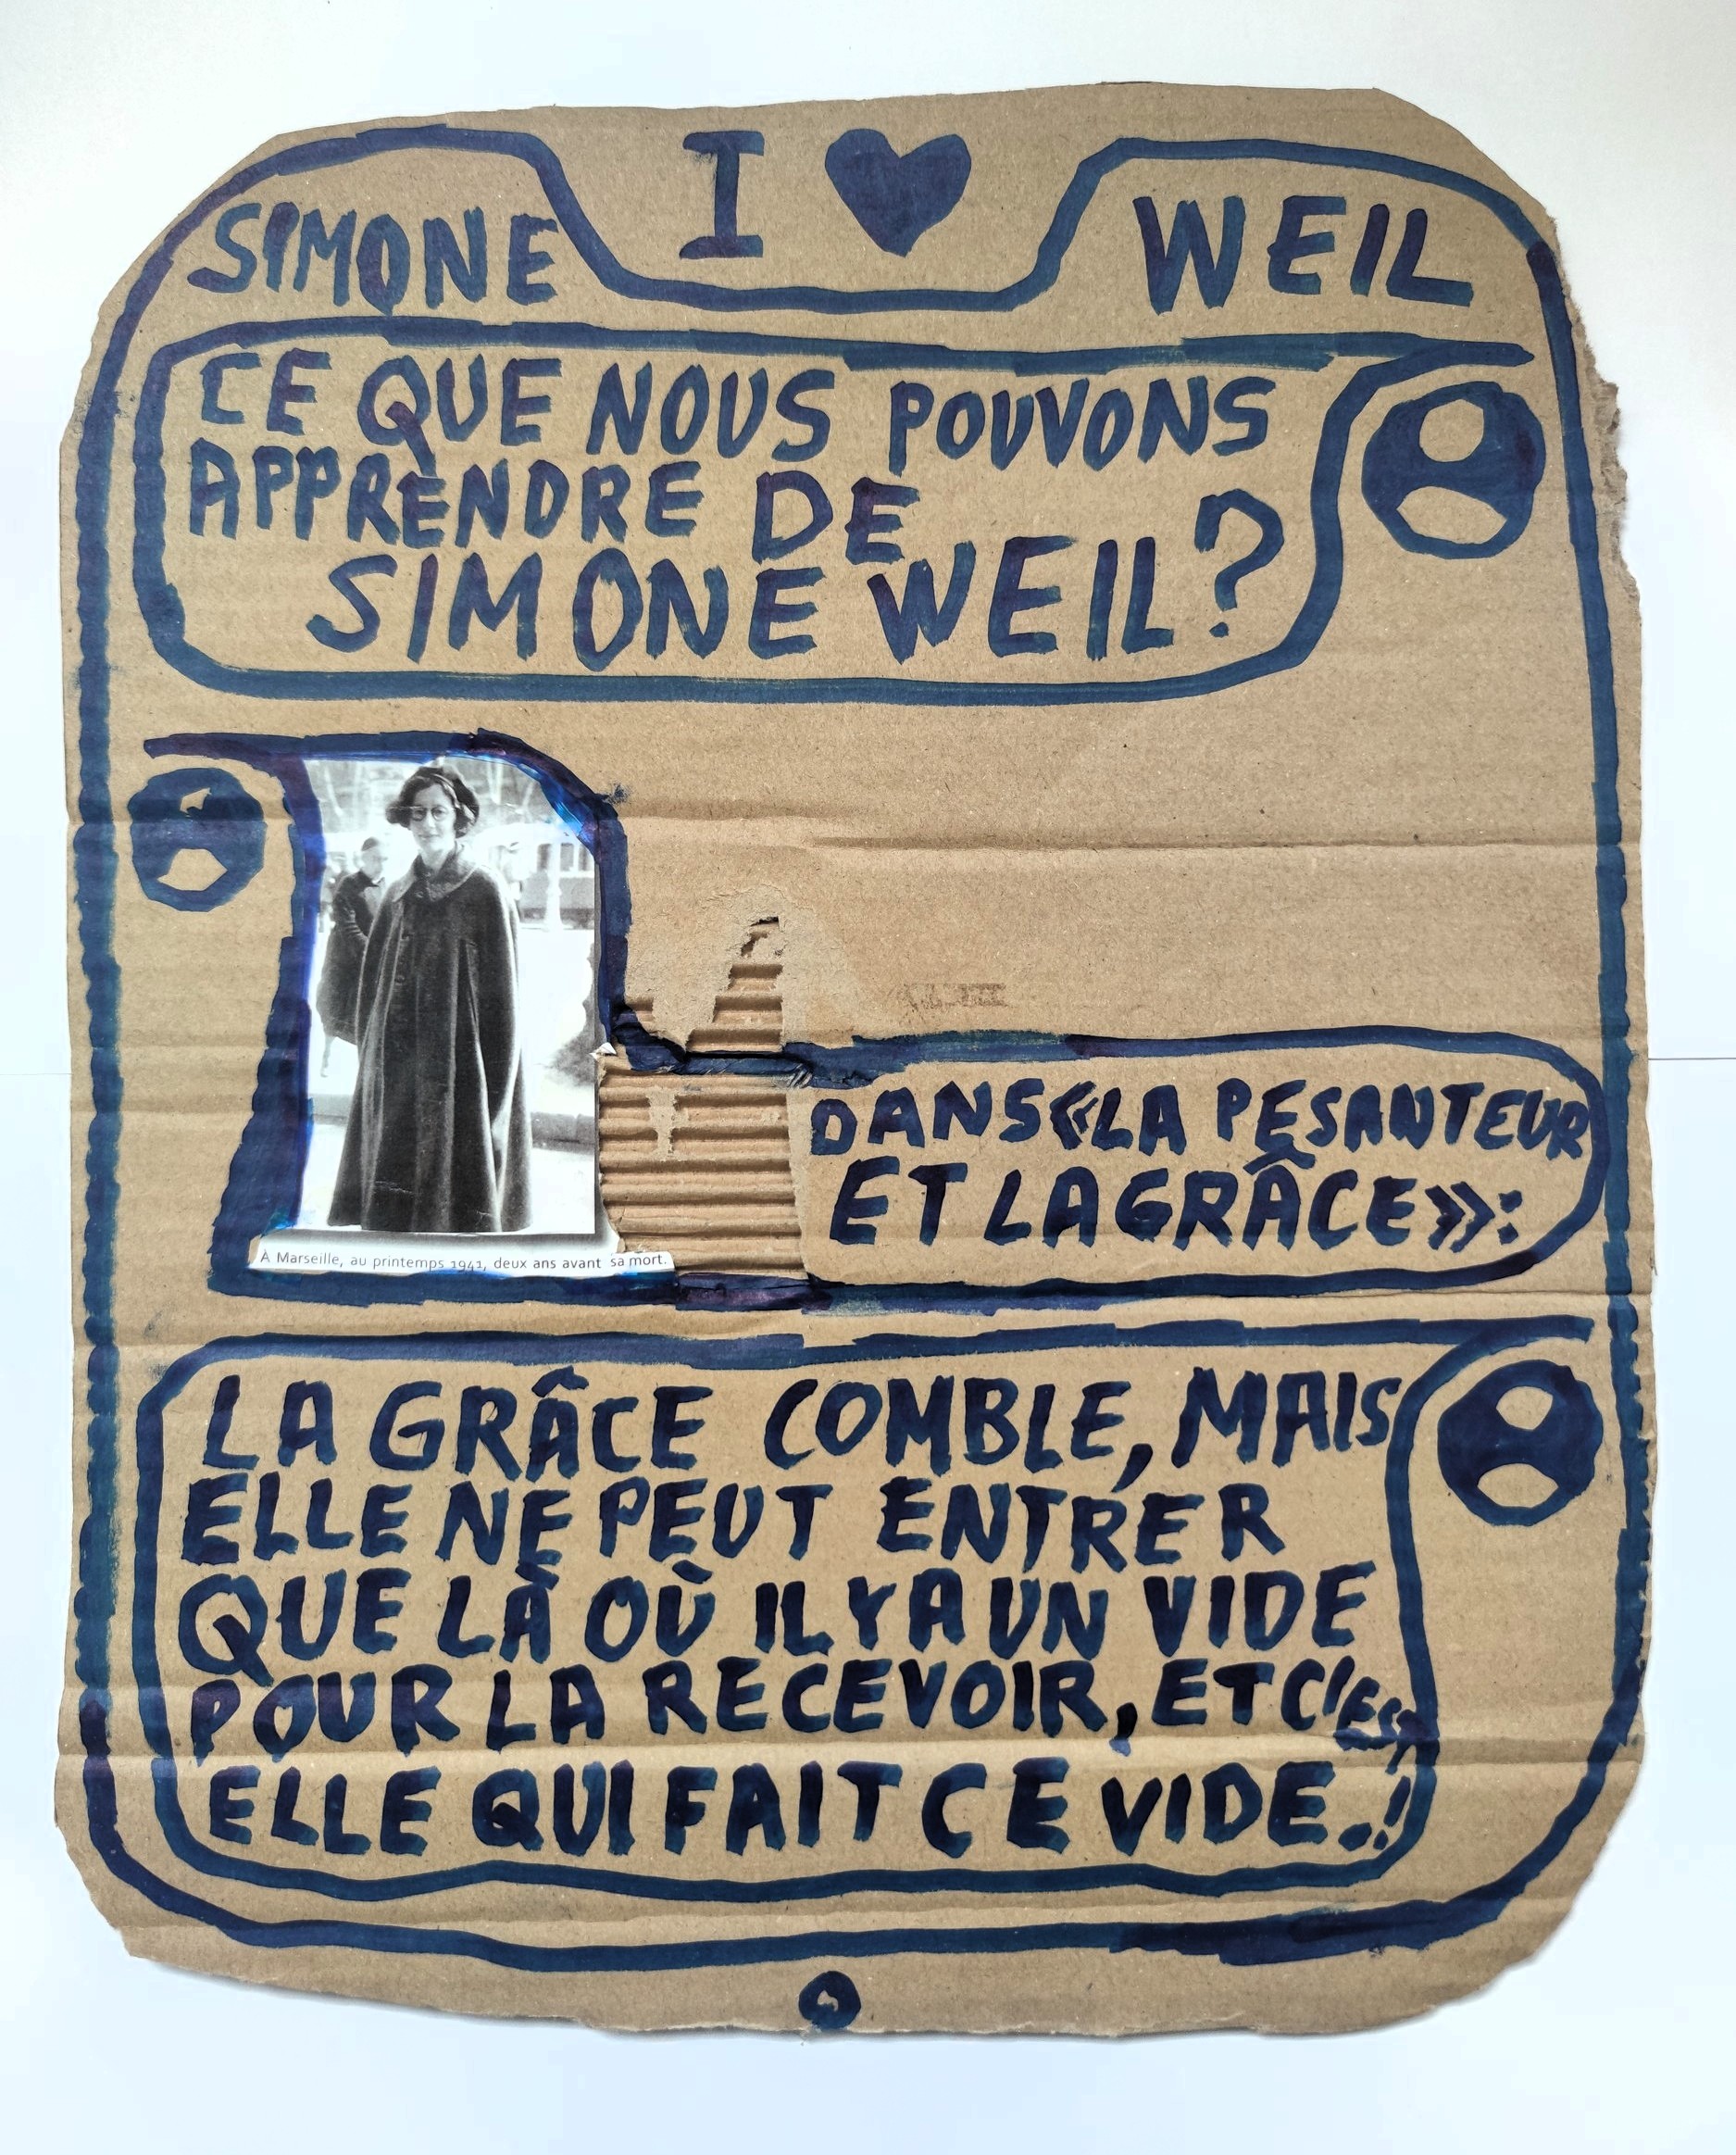 I ♥
SIMONE WEIL
CE QUE NOUS POUVONS
APPRENDRE DE
SIMONE WEIL?
À Marseille, au printemps 1941, deux ans avant sa mort.
DANS «LA PESANTEUR
ET LA GRÂCE»:
LA GRÂCE COMBLE, MAIS
ELLE NE PEUT ENTRER
QUE LÀ OÙ IL Y A UN VIDE
POUR LA RECEVOIR, ET C'EST
ELLE QUI FAIT CE VIDE.!